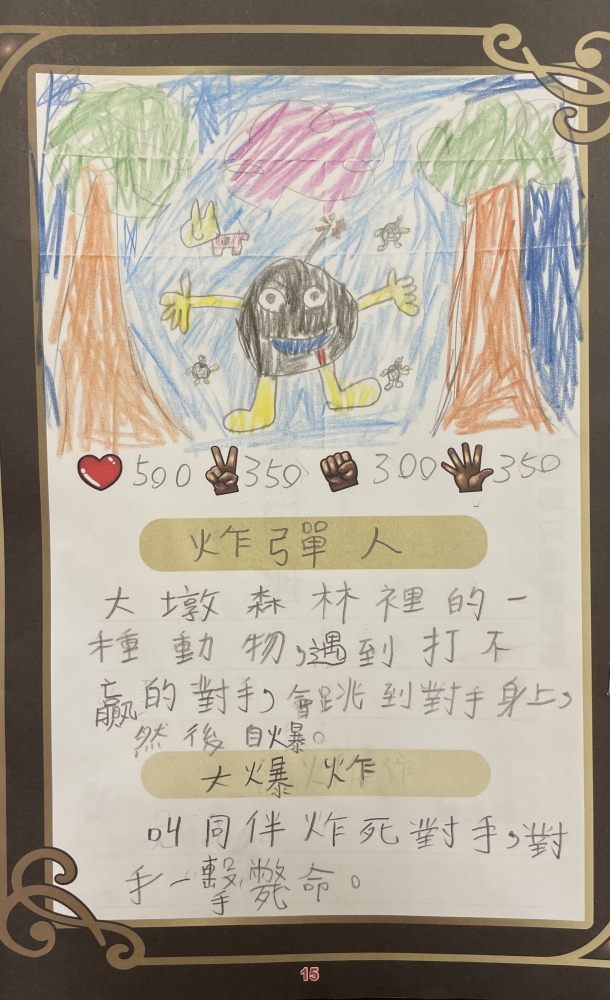 500 350 300 350
炸彈人
大墩森林裡的一
種動物,遇到打不
贏的對手,會跳到對手身上,
然後自爆。
大爆炸
叫同伴炸死對手,對
手一擊斃命。
15